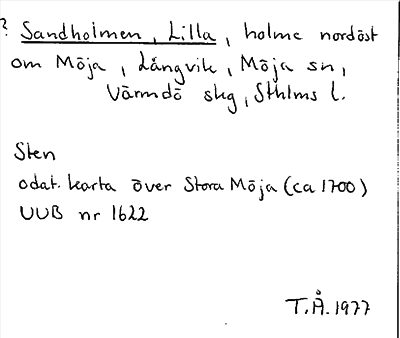 ? Sandholmen, Lilla, holme nordöst
om Möja, Långvik, Möja sn,
Värmdö skg, Sthlms l.
Sten
odat. karta över Stora Möja (ca 1700)
UUB nr 1622
T.Å. 1977